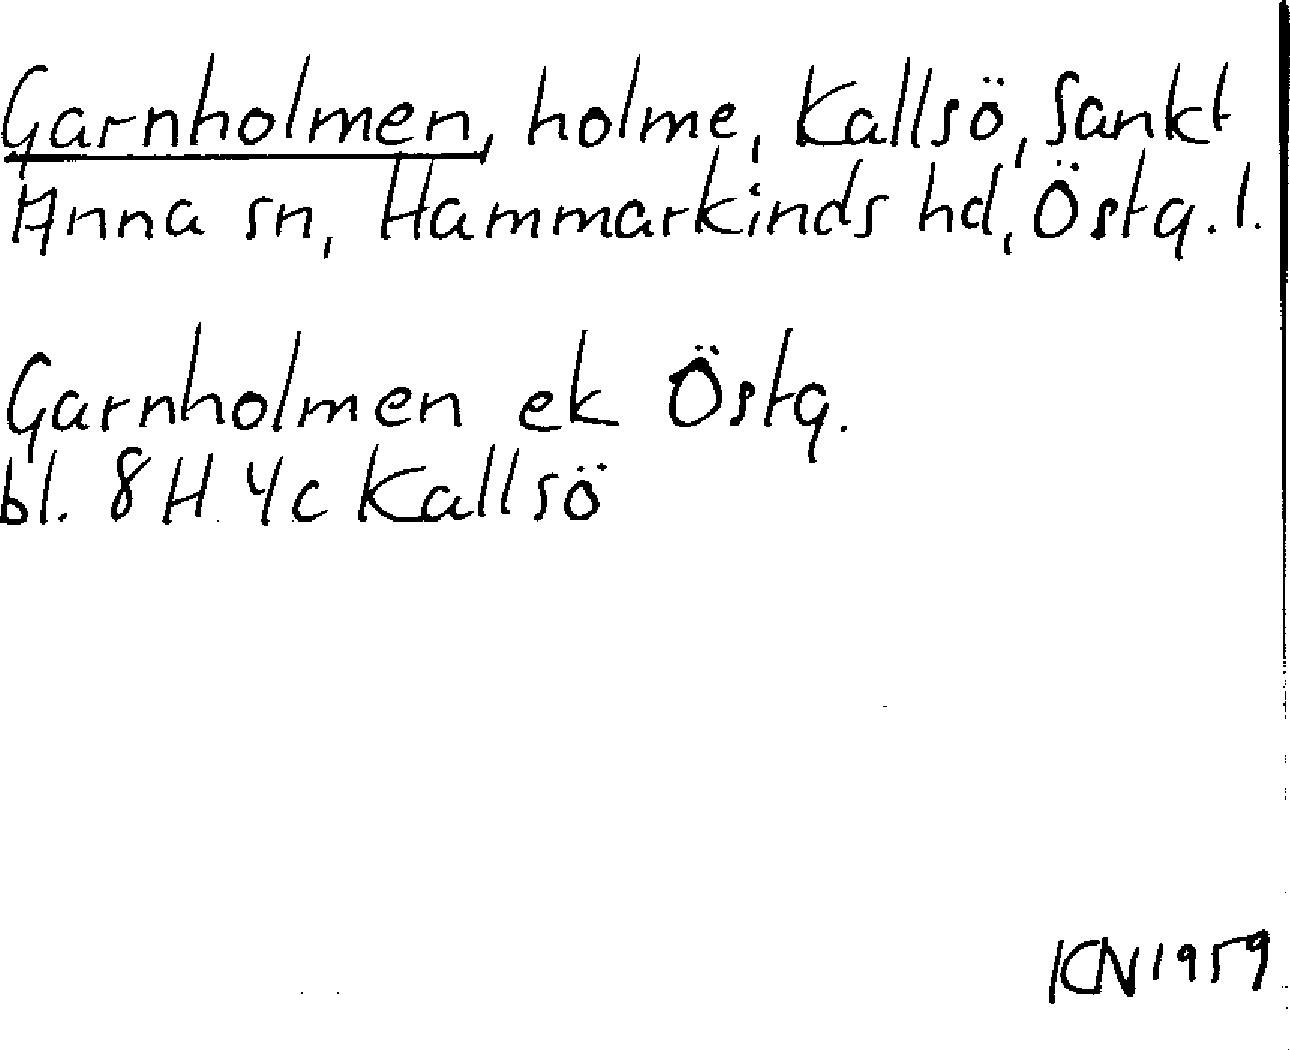 Garnholmen, holme, Kallsö, Sankt
Anna sn, Hammarkinds hd, Östg. l.
Garnholmen ek Östg.
bl. 8H 4c Kallsö
KN 1959